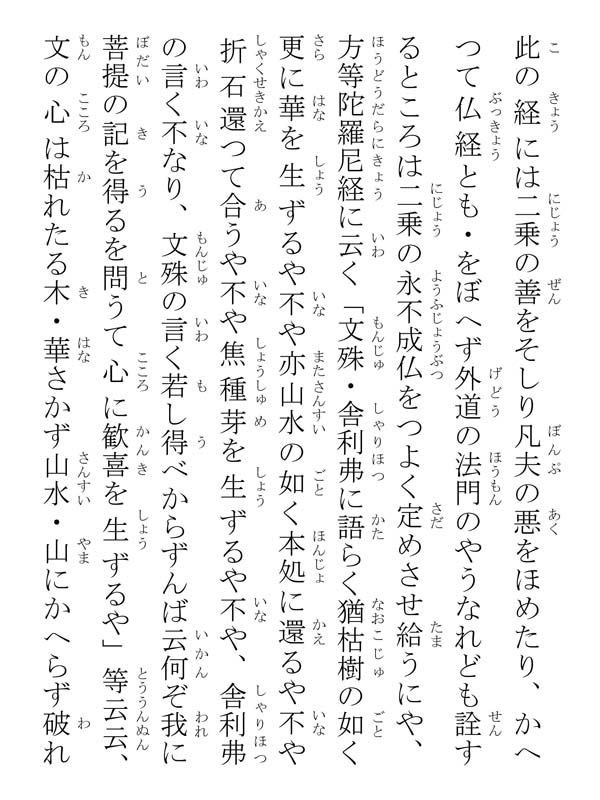 此の経には二乗の善をそしり凡夫の悪をほめたり、かへ
つて仏経とも・をぼへず外道の法門のやうなれども詮す
るところは二乗の永不成仏をつよく定めさせ給うにや、
方等陀羅尼経に云く「文殊・舎利弗に語らく猶枯樹の如く
更に華を生ずるや不や亦山水の如く本処に還るや不や
折石還つて合うや不や焦種芽を生ずるや不や、舎利弗
の言く不なり、文殊の言く若し得べからずんば云何ぞ我に
菩提の記を得るを問うて心に歓喜を生ずるや」等云云、
文の心は枯れたる木・華さかず山水・山にかへらず破れ